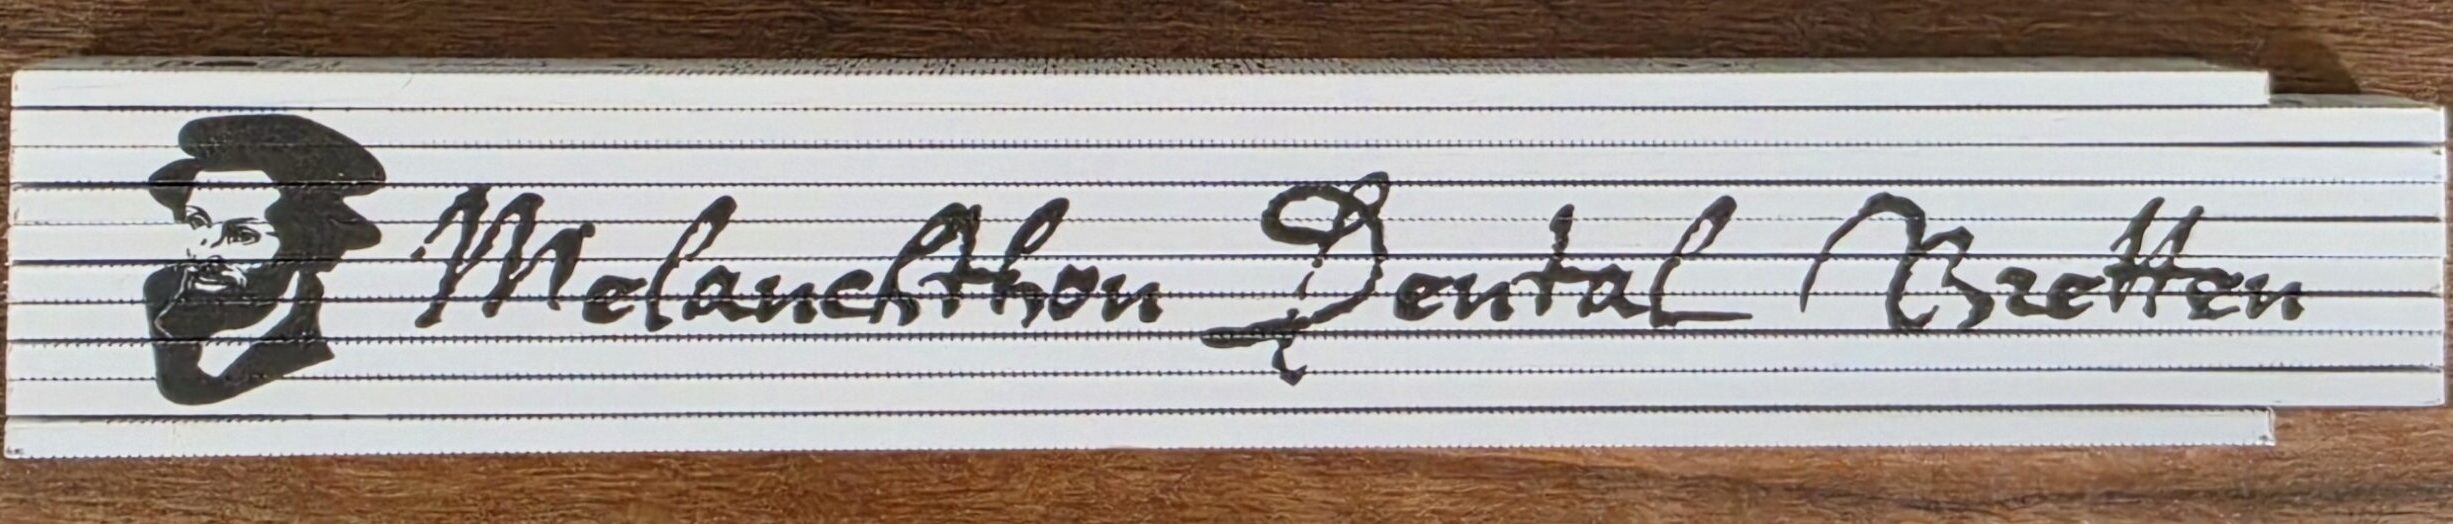 Melanchthon Dental Bretten